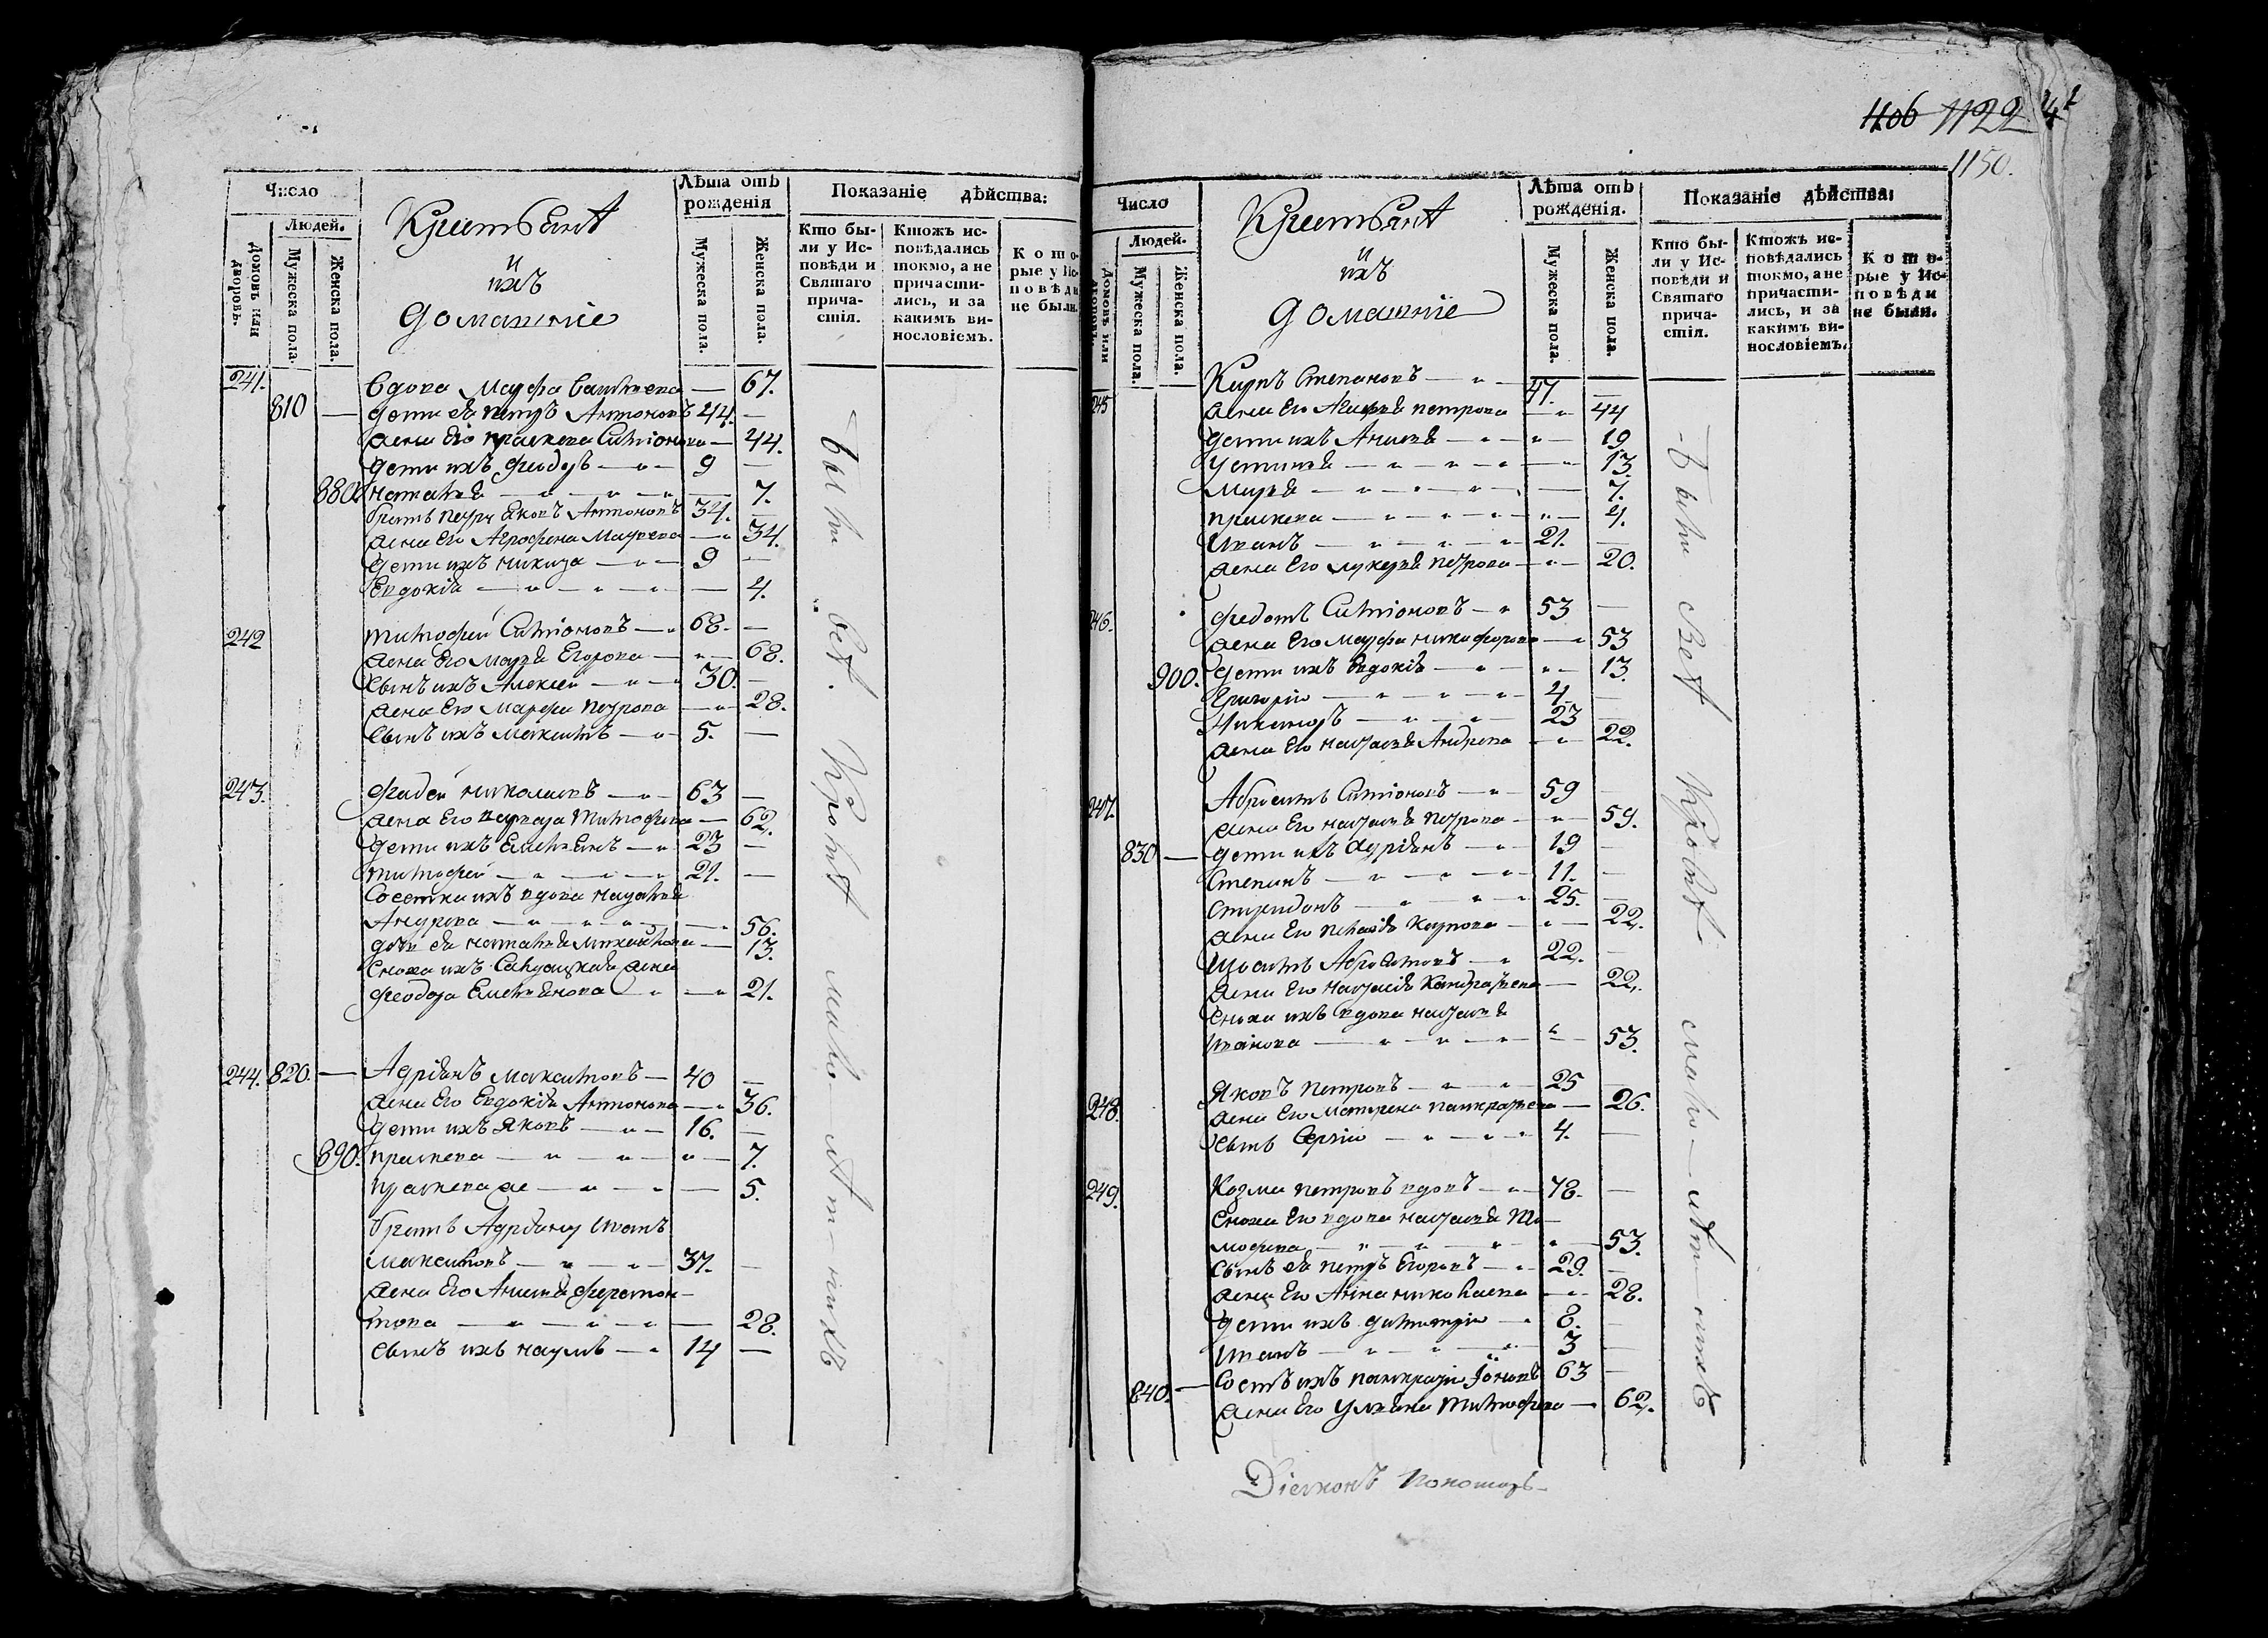 Число
Людей.
Домовъ или дворовъ.
Мужеска пола.
Женска пола.
Крестьянѣ
и
ихъ
домашніе
Лѣта отъ рожденія
Мужеска пола.
Женска пола.
Показаніе дѣйства:
Кто были у Исповѣди и Святаго причастія.
Ктожъ исповѣдались токмо, а не причастились, и за какимъ винословіемъ.
Которые у Исповѣди не были.
241. Вдова Марфа — 67.
810 — дети ея петръ Антоновъ 44. —
жена его праскева Симіонова — 44.
дети ихъ — 9 —
880. наталья — 7.
братъ петру Яковъ Антоновъ 34. —
жена его Агрофена — 34.
дети ихъ никита — 9 —
Евдокія — 4.
242 тимофей Симіоновъ — 68. —
жена его марья Егорова — 68.
сынъ ихъ Алексей — 30. —
жена его Марфа петрова — 28.
сынъ ихъ максимъ — 5. —
243. фадей николаевъ — 63 —
жена его тимофеева — 62.
дети ихъ Емельянъ — 23 —
тимофей — 21. —
Соседка ихъ вдова наталья
— 56.
дочь ея наталья михайлова — 13.
сноха ихъ солдатская жена
феодора Емельянова — 21.
244. 820. — Адріянъ максимовъ — 40 —
жена его Евдокія Антонова — 36.
дети ихъ Яковъ — 16. —
890. праскева — 7.
праскева же — 5.
братъ Адріяну Иванъ
максимовъ — 37. —
жена его Анисья
това — 28.
сынъ ихъ наумъ — 14 —
были все. Кроме мало летнихъ
1106 1122 41
1150.
Число
Людей.
Домовъ или дворовъ.
Мужеска пола.
Женска пола.
Крестьянѣ
и
ихъ
домашніе
Лѣта отъ рожденія.
Мужеска пола.
Женска пола.
Показаніе дѣйства:
Кто были у Исповѣди и Святаго причастія.
Ктожъ исповѣдались токмо, а не причастились, и за какимъ винословіемъ.
Которые у Исповѣди не были.
245 Карпъ Степановъ — 47. —
жена его петрова — 44
дети ихъ Анисья — 19
Устинья — 13.
Марья — 7.
праскева — 4.
Иванъ — 21. —
жена его лукерья петрова — 20.
246. федотъ Симіоновъ — 53 —
жена его марфа никифорова — 53
900. дети ихъ Евдокія — 13.
Григорій — 4. —
Никаноръ — 23 —
жена его настасья Андреева — 22.
247. Абросимъ Симіоновъ — 59 —
жена его настасья петрова — 59.
830 — дети ихъ Адріянъ — 19 —
Степанъ — 11. —
Спиридонъ — 25. —
жена его пелагія Карпова — 22.
Абросимовъ — 22. —
жена его настасія Кондратьева — 22.
сноха ихъ вдова настасья
Иванова — 53.
248. Яковъ петровъ — 25 —
жена его матрена панкратьева — 26.
сынъ Сергій — 4. —
249. Козма петровъ вдовъ — 78. —
сноха его вдова настасья ти-
мофеева — 53.
сынъ ея петръ Егоровъ — 29. —
жена его Анна николаева — 28.
дети ихъ димитрій — 8. —
Иванъ — 3 —
840. — Соседъ ихъ панкратій Іоновъ 63 —
жена его Ульяна тимофеева — 62.
были все Кроме мало — летнихъ
Діаконъ Кономоръ